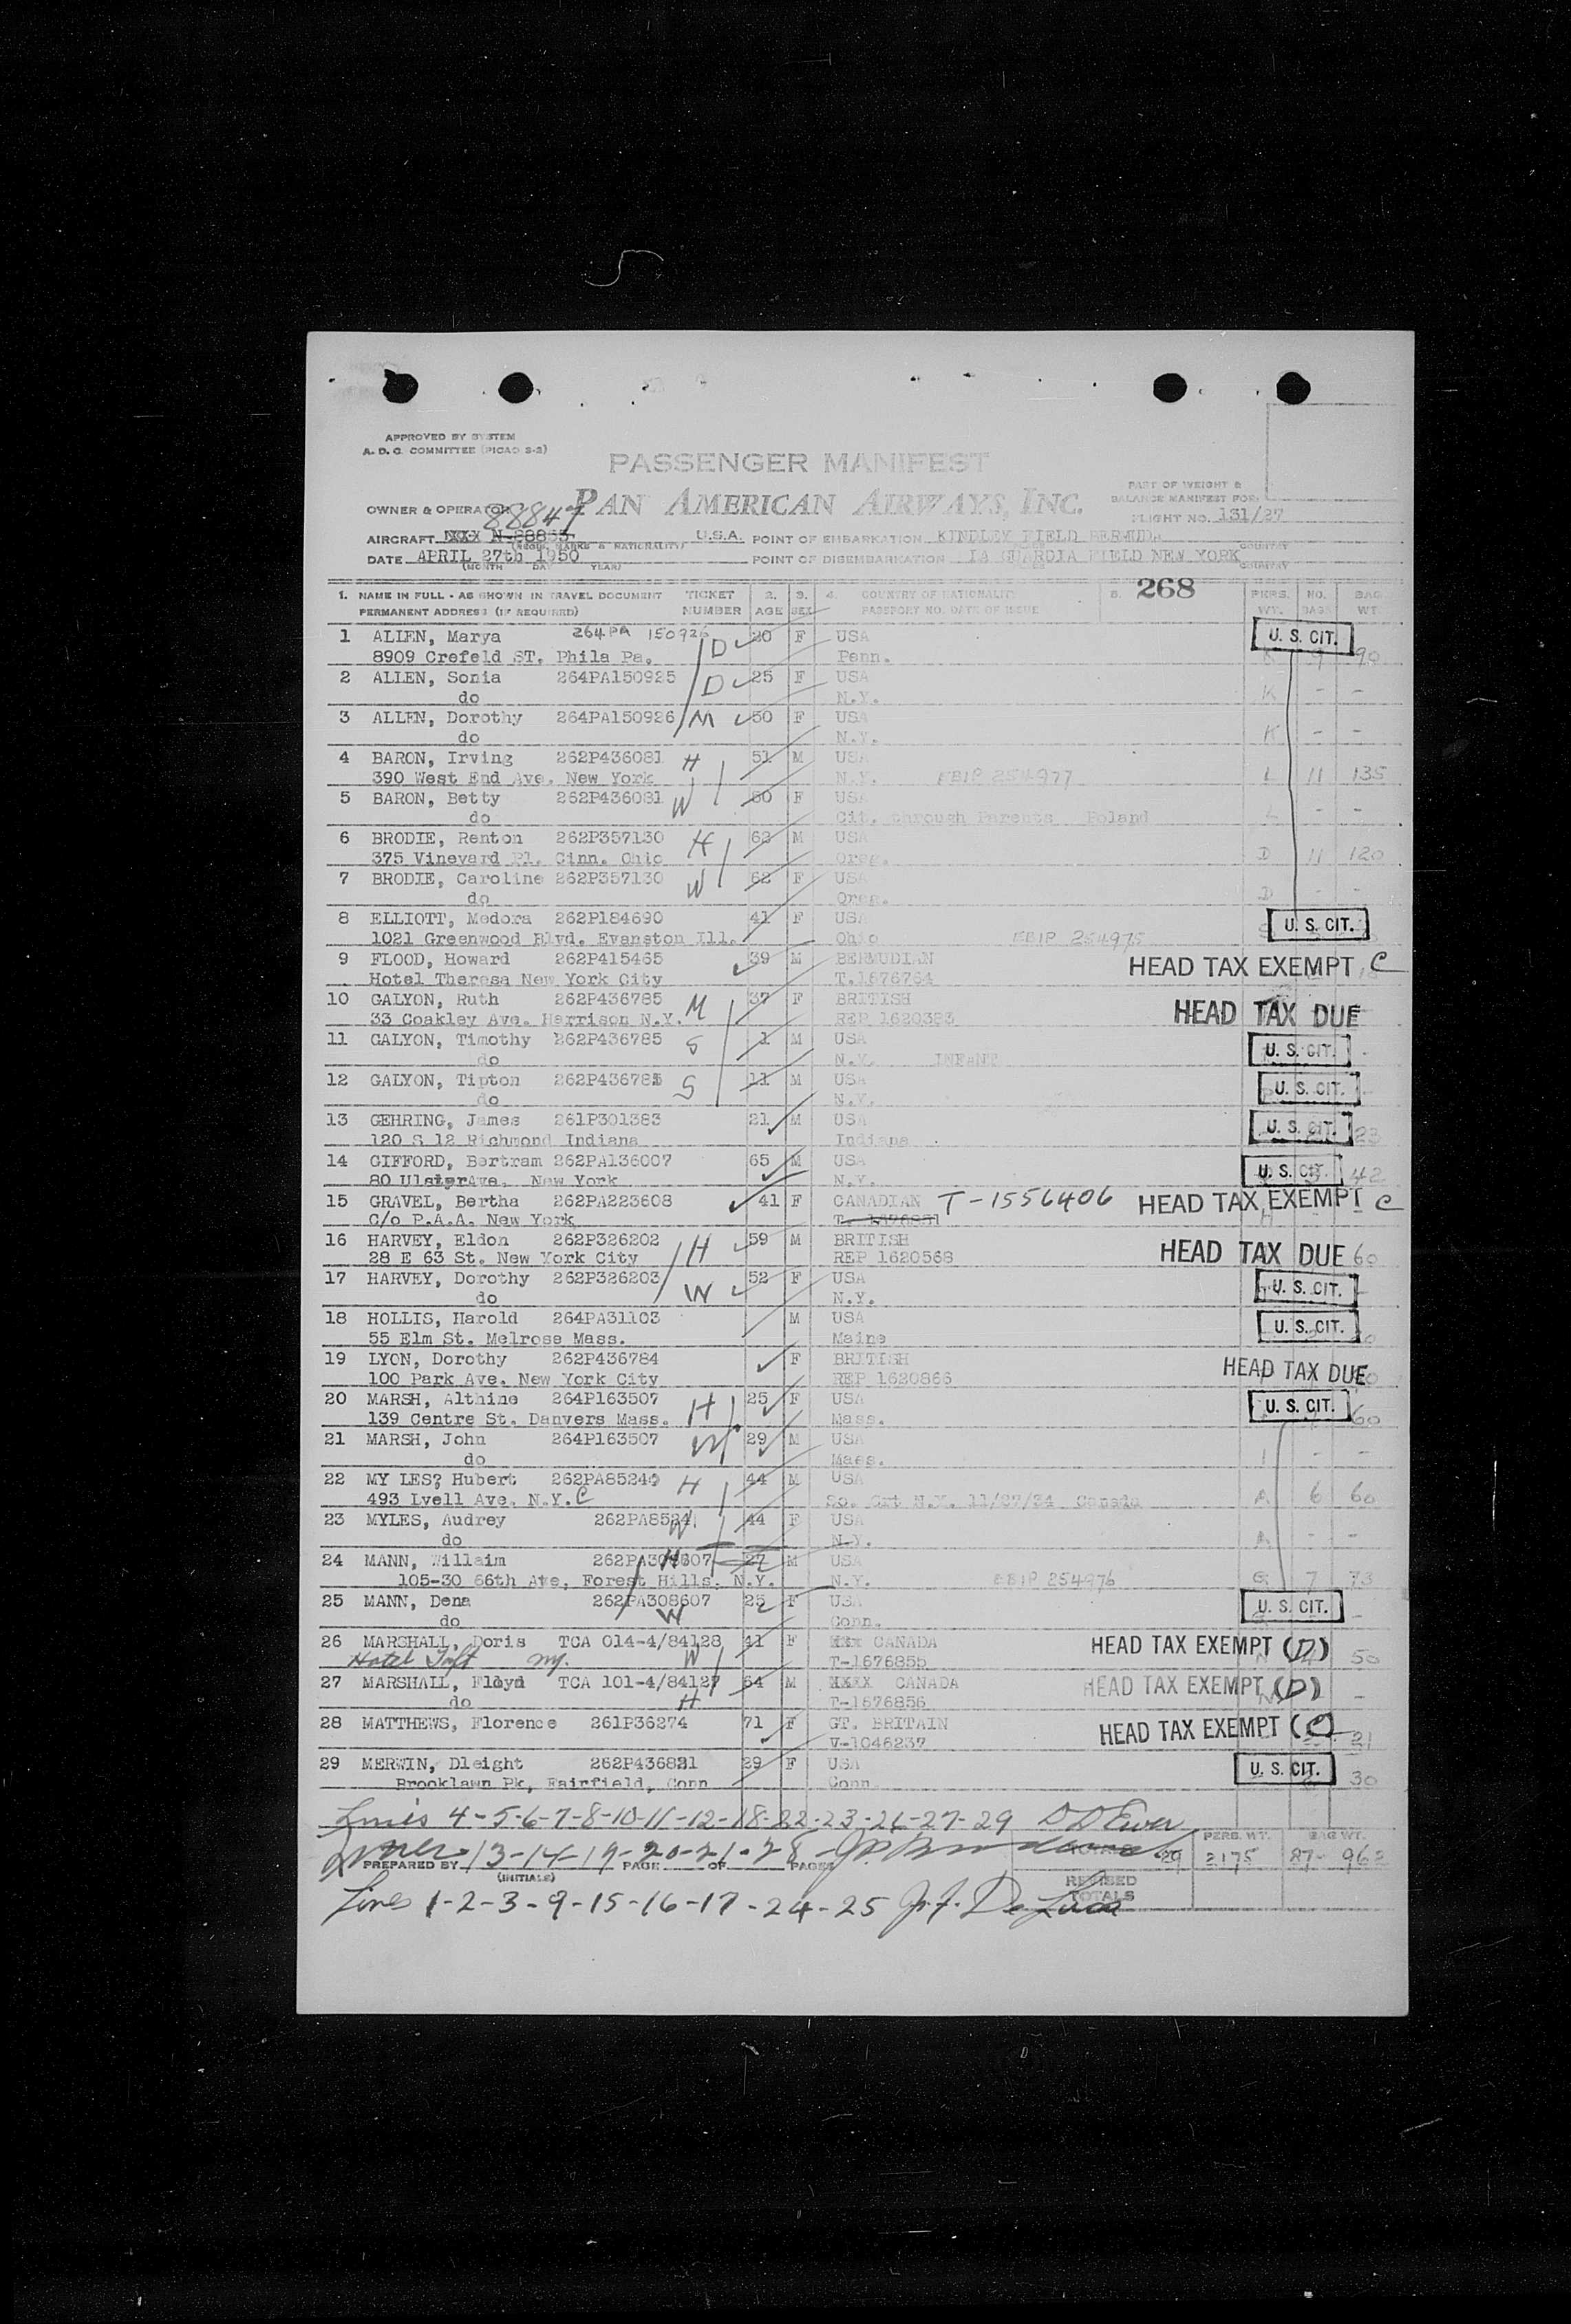 APPROVED BY SYSTEM
A. D. C. COMMITTEE (PICAO S-2)
PASSENGER MANIFEST
PAN AMERICAN AIRWAYS, INC.
PART OF WEIGHT &
BALANCE MANIFEST FOR:
FLIGHT NO. 131/27
OWNER & OPERATOR
88847
AIRCRAFT NXX N-88883 U.S.A. POINT OF EMBARKATION KINDLEY FIELD BERMUDA
(REGIS. MARKS & NATIONALITY) COUNTRY
DATE APRIL 27th 1950 POINT OF DISEMBARKATION LA GUARDIA FIELD NEW YORK
(MONTH DAY YEAR) COUNTRY
1. NAME IN FULL - AS SHOWN IN TRAVEL DOCUMENT TICKET 2. 3. 4. COUNTRY OF NATIONALITY 5. 268 PERS. NO. BAG.
PERMANENT ADDRESS (IF REQUIRED) NUMBER AGE SEX PASSPORT NO. DATE OF ISSUE WT. BAGS WT.
1 ALLEN, Marya 264PA 150926 D 20 F USA U. S. CIT.
8909 Crefeld ST. Phila Pa. Penn. K 9 90
2 ALLEN, Sonia 264PA150925 D 25 F USA
do N.Y. K - -
3 ALLEN, Dorothy 264PA150926 M 50 F USA
do N.Y. K - -
4 BARON, Irving 262P436081 H 51 M USA
390 West End Ave. New York N.Y. EBIP 254977 L 11 135
5 BARON, Betty 262P436081 W 50 F USA
do Cit. through Parents Poland L - -
6 BRODIE, Renton 262P357130 H 62 M USA
375 Vineyard Pl. Cinn. Ohio Oreg. D 11 120
7 BRODIE, Caroline 262P357130 W 62 F USA
do Oreg. D - -
8 ELLIOTT, Medora 262P184690 41 F USA U. S. CIT.
1021 Greenwood Blvd. Evanston Ill. Ohio EBIP 254975
9 FLOOD, Howard 262P415465 39 M BERMUDIAN HEAD TAX EXEMPT C
Hotel Theresa New York City T.1876764
10 GALYON, Ruth 262P436785 M 37 F BRITISH HEAD TAX DUE
33 Coakley Ave. Harrison N.Y. REP 1620383
11 GALYON, Timothy 262P436785 S 1 M USA U. S. CIT.
do N.Y. INFANT
12 GALYON, Tipton 262P436785 S 11 M USA U. S. CIT.
do N.Y.
13 GEHRING, James 261P301383 21 M USA U. S. CIT.
120 S 12 Richmond Indiana Indiana 23
14 GIFFORD, Bertram 262PA136007 65 M USA U. S. CIT.
80 UlsterAve. New York N.Y. 42
15 GRAVEL, Bertha 262PA223608 41 F CANADIAN T-1556406 HEAD TAX EXEMPT C
C/o P.A.A. New York
16 HARVEY, Eldon 262P326202 H 59 M BRITISH HEAD TAX DUE 60
28 E 63 St. New York City REP 1620568
17 HARVEY, Dorothy 262P326203 W 52 F USA U. S. CIT.
do N.Y.
18 HOLLIS, Harold 264PA31103 M USA U. S. CIT.
55 Elm St. Melrose Mass. Maine
19 LYON, Dorothy 262P436784 F BRITISH HEAD TAX DUE
100 Park Ave. New York City REP 1620866
20 MARSH, Althine 264P163507 H 25 F USA U. S. CIT.
139 Centre St. Danvers Mass. Mass. 60
21 MARSH, John 264P163507 W 29 M USA
do Mass. I - -
22 MY LES? Hubert 262PA85240 H 44 M USA
493 Lyell Ave. N.Y.C So. Crt N.Y. 11/27/34 Canada A 6 60
23 MYLES, Audrey 262PA8524 W 44 F USA
do N.Y. A - -
24 MANN, Willaim 262PA308607 H 27 M USA
105-30 66th Ave, Forest Hills. N.Y. N.Y. EBIP 254976 G 7 73
25 MANN, Dena 262PA308607 25 F USA U. S. CIT.
do W Conn. G - -
26 MARSHALL, Doris TCA 014-4/84128 41 F XXX CANADA HEAD TAX EXEMPT (D)
Hotel Taft NY. W T-1676855 50
27 MARSHALL, Floyd TCA 101-4/84127 64 M XXXX CANADA HEAD TAX EXEMPT (D)
do H T-1676856 -
28 MATTHEWS, Florence 261P36274 71 F GT. BRITAIN HEAD TAX EXEMPT (C)
V-1046237 21
29 MERWIN, Dleight 262P436821 29 F USA U. S. CIT.
Brooklawn Pk, Fairfield, Conn Conn. 30
Lines 4-5-6-7-8-10-11-12-18-22-23-26-27-29 D D Ewer
Lines 13-14-19-20-21-28
PREPARED BY PAGE OF PAGES TOTALS 29 PERS. WT. 2175 87 BAG WT. 962
(INITIALS) REVISED
TOTALS
Lines 1-2-3-9-15-16-17-24-25 J.F. De Luca